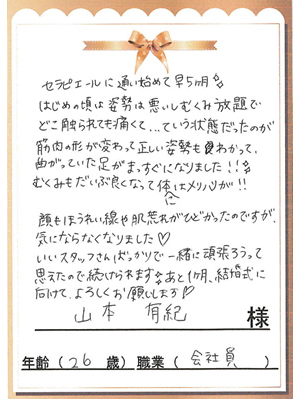 セラピエールに通い始めて早5ヶ月
はじめの頃は姿勢は悪いしむくみ放題で
どこ触られても痛くて…ていう状態だったのが
筋肉の形が変わって正しい姿勢もわかって、
曲がっていた足がまっすぐになりました!!
むくみもだいぶ良くなって体にメリハリが!!
顔もほうれい線や肌荒れがひどかったのですが、
気にならなくなりました♡
いいスタッフさんばっかりで一緒に頑張ろうって
思えたので続けられます あと1ヶ月、結婚式に
向けて、よろしくお願いします♡
山本 有紀 様
年齢(26 歳) 職業(会社員)